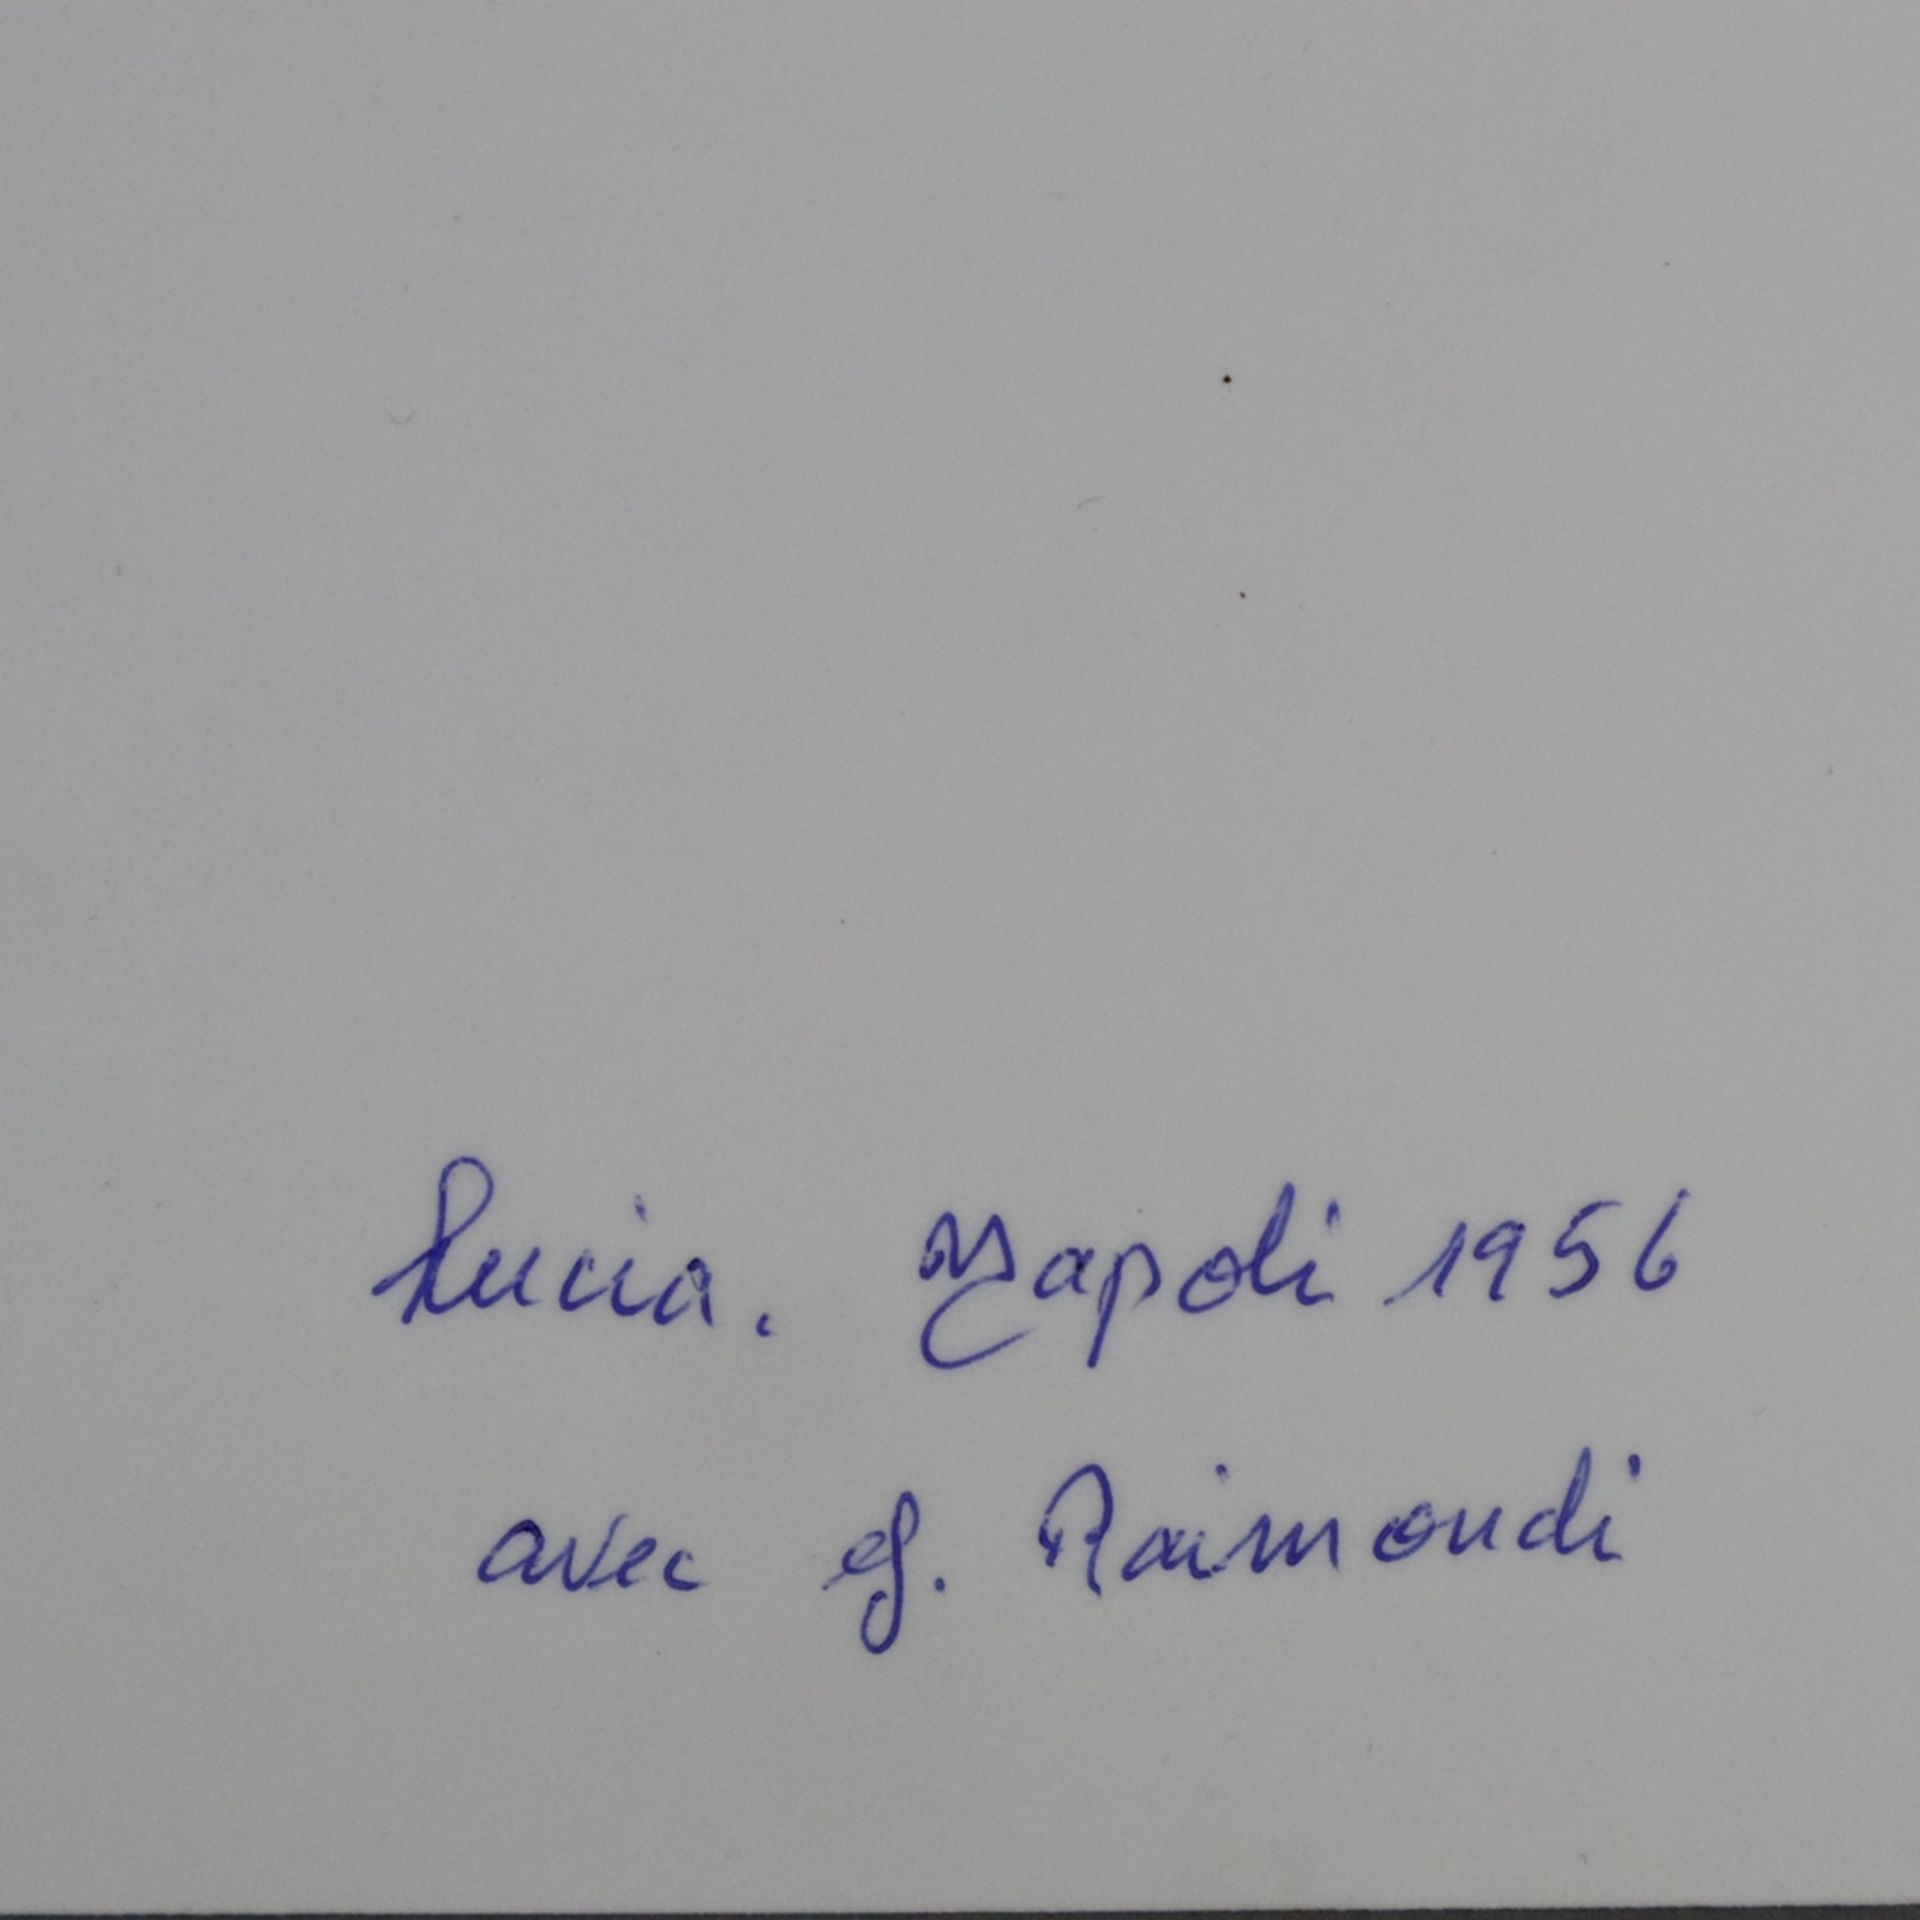 Lucia. Napoli 1956
avec G. Raimondi